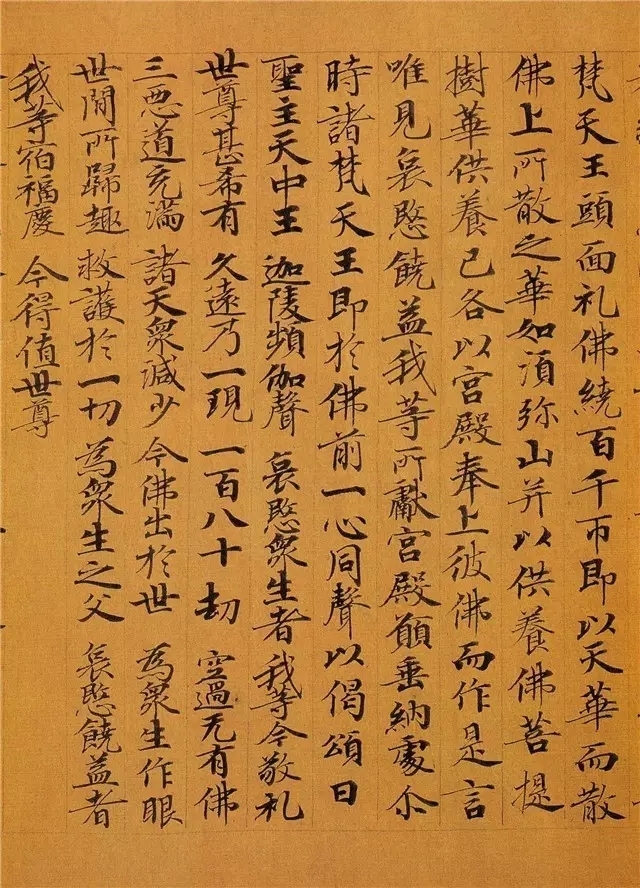 梵天王頭面礼佛繞百千帀即以天華而散
佛上所散之華如須弥山并以供養佛菩提
樹華供養已各以宮殿奉上彼佛而作是言
唯見哀愍饒益我等所獻宮殿願垂納處尒
時諸梵天王即於佛前一心同聲以偈頌曰
聖主天中王 迦陵頻伽聲 哀愍衆生者 我等今敬礼
世尊甚希有 久遠乃一現 一百八十劫 空過无有佛
三惡道充滿 諸天衆減少 今佛出於世 為衆生作眼
世間所歸趣 救護於一切 為衆生之父 哀愍饒益者
我等宿福慶 今得值世尊